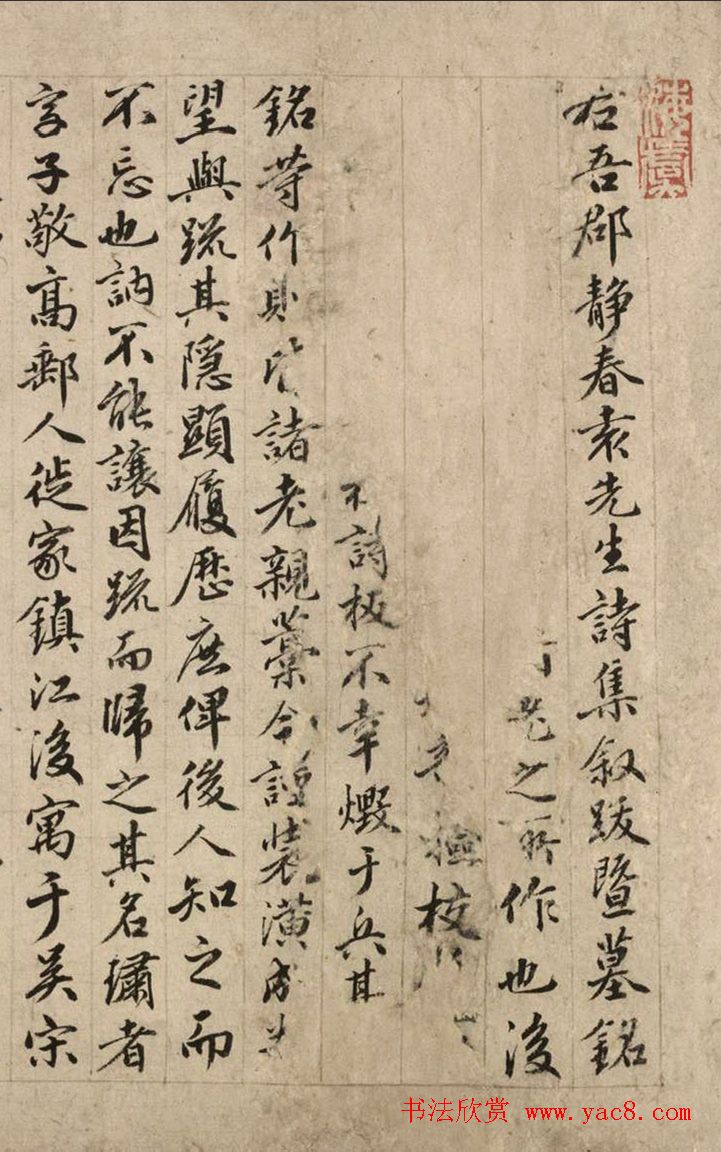 右吾郡静春袁先生詩集叙跋暨墓銘
之所作也後
檢校
不詩板不幸燬于兵其
銘等作則皆諸老親藁令謹裝潢成
望與疏其隱顯履歷庶俾後人知之而
不忘也訥不能讓因疏而歸之其名璛者
字子敬高郵人徙家鎮江後寓于吳宋
书法欣赏 www.yac8.com